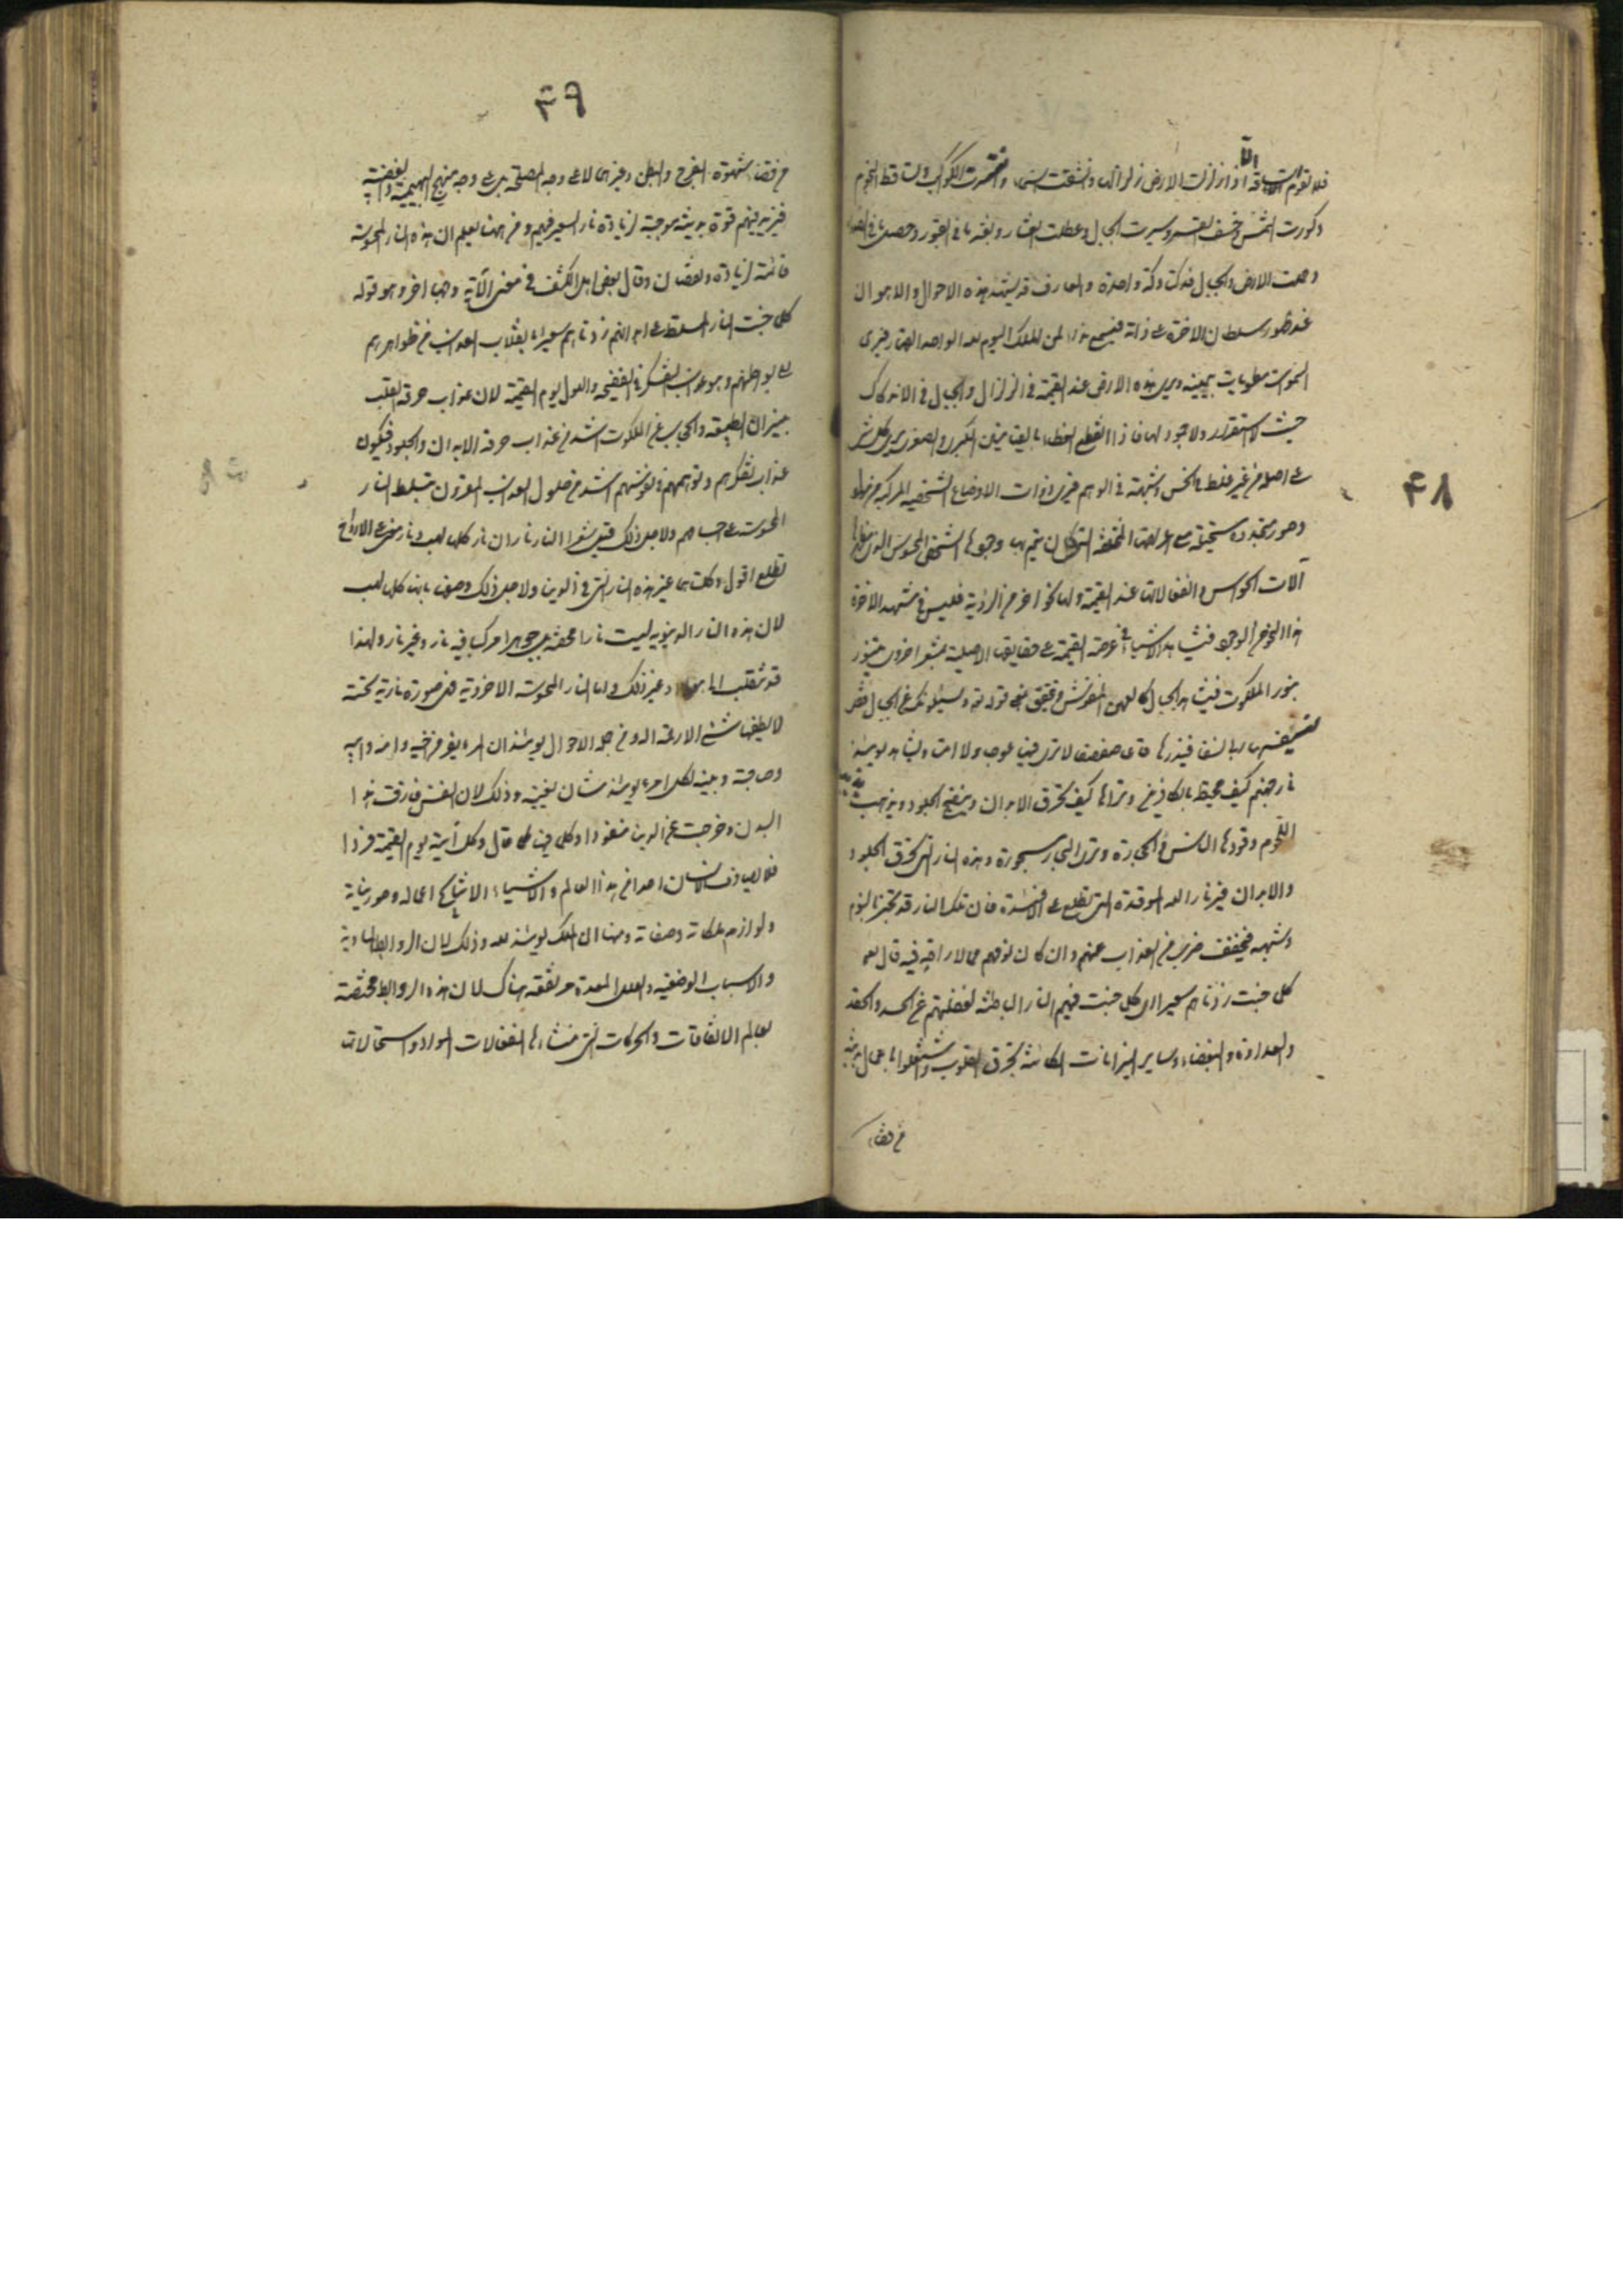 فلا تقوم الساعة الا اذا زلزلت الارض زلزالها وانشقت السماء وانتثرت الكواكب وتساقط النجوم
وكورت الشمس وخسف القمر وسيرت الجبال وعطلت العشار وبعثر ما في القبور وحصل ما في الصدور
وحملت الارض والجبال فدكتا دكة واحدة والعارف قد يشهد هذه الاحوال والاهوال
عند ظهور سلطان الاخرة على ذاته فيسمع نداء لمن الملك اليوم لله الواحد القهار فيرى
السموات مطويات بيمينه ويرى هذه الارض عند القيمة في الزلزال والجبال في الاندكاك
حيث لا استقرار ولا جمود لها فاذا انقطع الغطاء بالقيامتين الكبرى والصغرى يرى كل شئ
على اصله من غير غلط في الحس وشبهة في الوهم فيرى ذوات الاوضاع الشخصية المركبة من مواد
وصور متجددة مستحيلة مع اعراضها المختلفة التي كان يتم بها وجودها الشخصي المحسوس الذي مظهرها
آلات الحواس وانفعالاتها عند القيمة ولها نحو اخر من الرؤية فليس في مشهد الاخرة
هذا النحو من الوجود فيشاهد الاشياء في عرصة القيمة على حقايقها الاصلية بمشعر اخروي متنور
بنور الملكوت فيشاهد الجبال كالعهن المنفوش ويتحقق معنى قوله تع ويسئلونك عن الجبال فقل
ينسفها ربي نسفا فيذرها قاعا صفصفا لا ترى فيها عوجا ولا امتا ويشاهد يومئذ
نار جهنم كيف محيط بالكافرين ويراها كيف تحرق الابدان وينضج الجلود ويذيب
اللحوم وقودها الناس والحجارة ويرى البحار مسجورة وهذه النار التي تحرق الجلود
والابدان غير نار الله الموقدة التي تطلع على الافئدة فان تلك النار قد تخبو بالنوم
وشبهه فيخفف ضرب من العذاب عنهم وان كان نومهم مما لا راحة فيه قال تعالى
كلما خبت زدناهم سعيرا اي كلما خبت فيهم النار الباطنة لغفلتهم عن الحسد والحقد
والعداوة والبغضاء وساير النيرانات الكامنة تحرق القلوب واشتغلوا باعمال بدنية
من قضاء
٤٨
٤٩
من قضاء شهوة الفرج والبطن وغيرهما لا على وجه المصلحة بل على وجه منهج البهيمية والغضبية
فيزيد فيهم قوة بدنية موجبة لزيادة نار السعير فيهم ومن ههنا يعلم ان هذه النار المحسوسة
قابلة لزيادة ونقصان وقال بعض اهل الكشف في معنى الآية وجها اخر وهو قوله
كلما خبت النار المسلطة على ابدانهم زدناهم سعيرا بانقلاب العذاب من ظواهرهم
الى بواطنهم وهو عذاب التفكر في الفضيحة والهول يوم القيمة لان عذاب حرقة القلب
بنيران القطيعة والحجاب عن الملكوت اشد من عذاب حرقة الابدان والجلود فيكون
عذاب تفكرهم وتوهمهم في نفوسهم اشد من حلول العذاب المقرون بتسلط النار
المحسوسة على اجسامهم ولاجل ذلك قيل شعرا النار ناران نار كلها لهب ونار معنى على الارواح
تطلع اقول وكلتاهما غير هذه النار التي في الدنيا ولاجل ذلك وصف بانها كلها لهب
لان هذه النار الدنيوية ليست نارا محضة بل جوهرا مركبا فيه نار وغير نار ولهذا
قد تنقلب الى هواء وغير ذلك واما النار المحسوسة الاخروية فهي صورة نارية بحتة
لا يطفيها شئ الا رحمة الله ومن جملة الاحوال يومئذ ان المرء يفر من اخيه وامه وابيه
وصاحبته وبنيه لكل امرء يومئذ شأن يغنيه وذلك لان النفس فارقت هذا
البدن وخرجت عن الدنيا منفردا وكل فيها كما قال وكل آتيه يوم القيمة فردا
فلا يصادف الانسان احدا من هذا العالم والاشياء الا نتايج اعماله وصور نياته
ولوازم ملكاته وصفاته ومنها ان الملك يومئذ لله وذلك لان الروابط المادية
والاسباب الوضعية والعلل المعدة مرتفعة هناك لان هذه الروابط مختصة
بعالم الاتفاقات والحركات التي منشاءها انفعالات المواد واستحالاتها